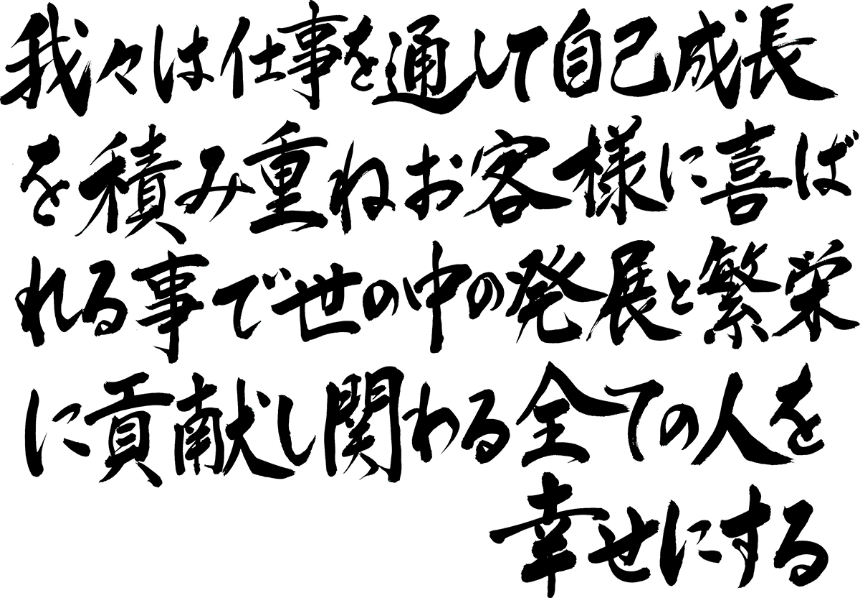 我々は仕事を通して自己成長
を積み重ねお客様に喜ば
れる事で世の中の発展と繁栄
に貢献し関わる全ての人を
幸せにする